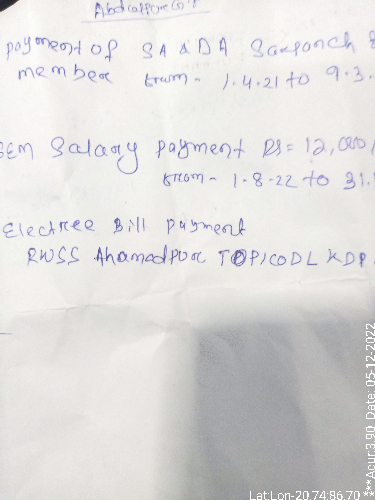 payment of SA & DA Sarpanch &
member from - 1.4.21 to 9.3.
GEM Salary payment Rs = 12,000/
from - 1-8-22 to 31.
Electree Bill payment
RWSS Ahamadpur TOP/CODL KDP
***Acur:3.90 Date: 05-12-2022
Lat:Lon-20.74:86.70***